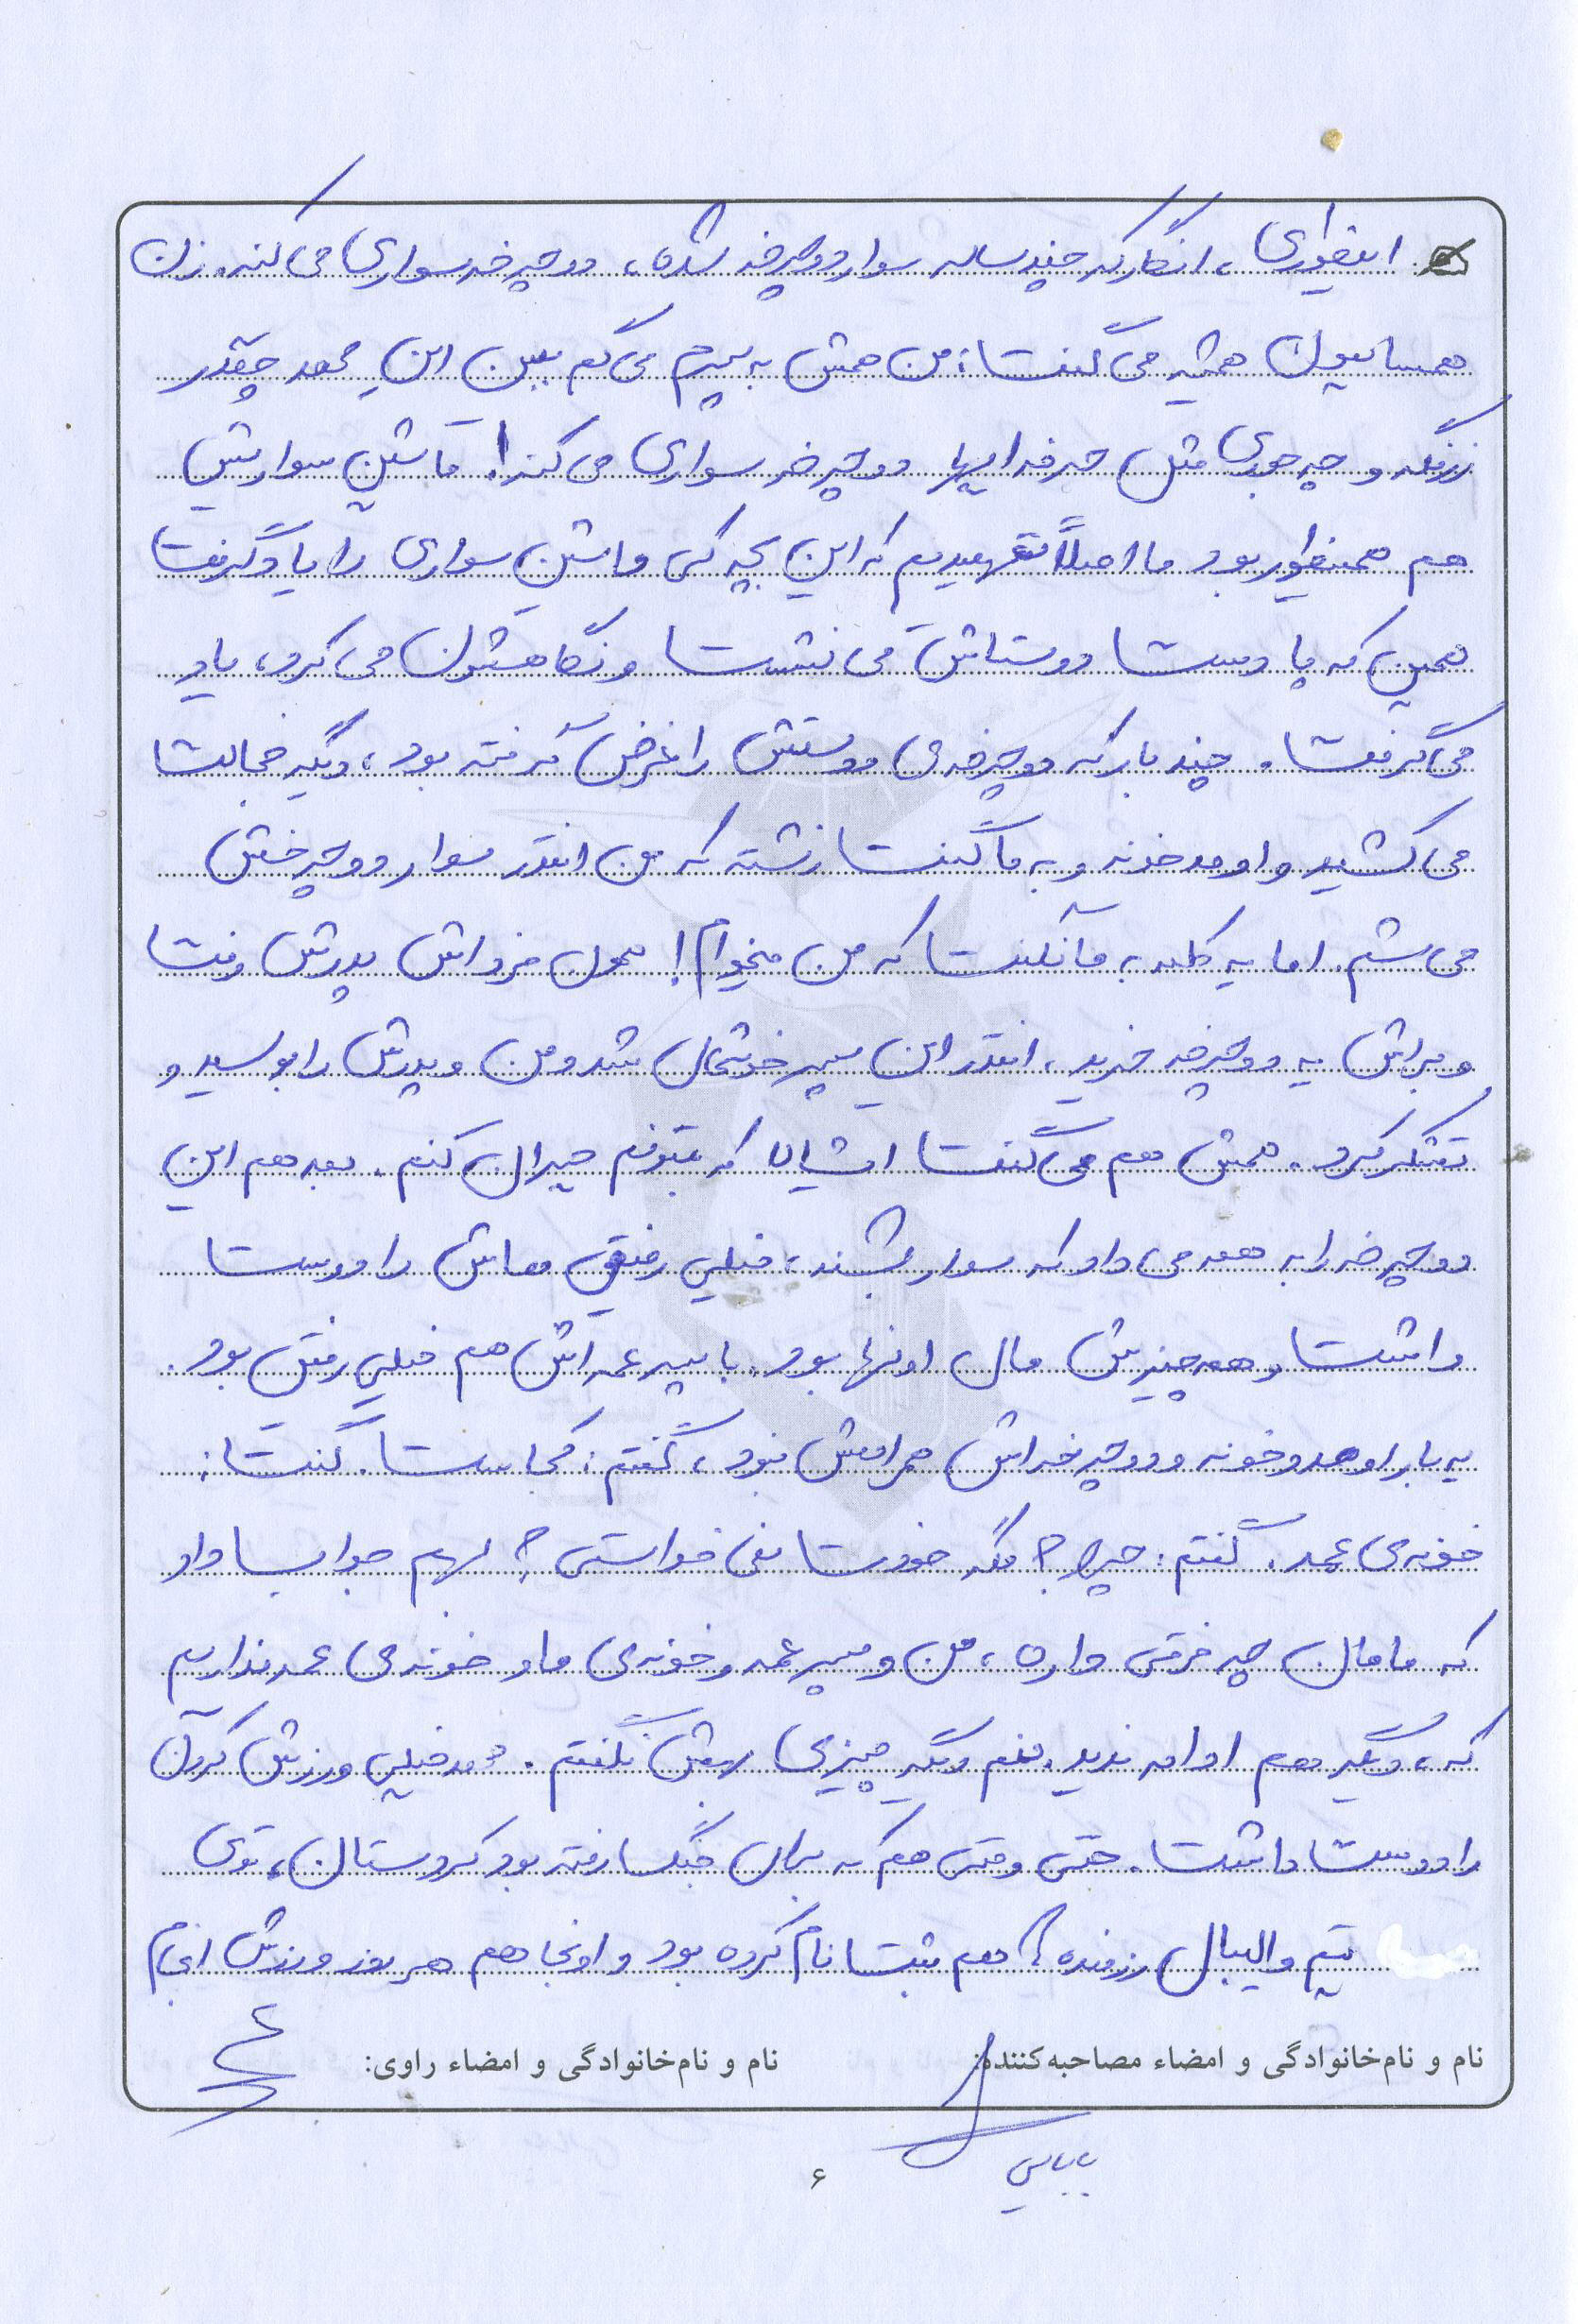 اینطوری، انگار که چند ساله سوار دوچرخه شده، دوچرخه سواری می کنه. زن
همسایمون همیشه می گفت: من همش به پسرم می گم ببین این محمد چقدر
زرنگه و چه جوری مثل حرفه ایها دوچرخه سواری می کند! ماشین سواریش
هم همینطور بود ما اصلاً نفهمیدیم که این بچه کی ماشین سواری را یاد گرفت
همین که پا دست دوستاش می نشست و نگاهشون می کرد، یاد
می گرفت. چند بار که دوچرخه ی دوستش را غرض گرفته بود، دیگه خجالت
می کشید و اومد خونه و به ما گفت زشته که من انقدر سوار دوچرخش
می شم. اما یه کلمه به ما نگفت که من میخوام! همون فرداش پدرش رفت
و براش یه دوچرخه خرید، انقدر این پسر خوشحال شد و من و پدرش را بوسید و
تشکر کرد. همش هم می گفت ایشالا که بتونم جبران کنم. بعد هم این
دوچرخه را به همه می داد که سوار بشند، خیلی رفیق هاش را دوست
داشت و همه چیزش مال اونها بود. با پسر عمه اش هم خیلی رفیق بود.
یه بار اومد خونه و دوچرخه اش همراهش نبود، گفتم: کجاست. گفت:
خونه ی عمه. گفتم: چرا؟ مگه خودت نمی خواستی؟ بهم جواب داد
که مامان چه فرقی داره، من و پسر عمه و خونه ی ما و خونه ی عمه نداریم
که، دیگه هم ادامه ندید. منم دیگه چیزی بهش نگفتم. محمد خیلی ورزش کردن
را دوست داشت. حتی وقتی هم که برای جنگ رفته بود کردستان، توی
تیم والیبال رزمنده ها هم ثبت نام کرده بود و اونجا هم هر روز ورزش انجام
نام و نام‌خانوادگی و امضاء مصاحبه‌کننده: نام و نام‌خانوادگی و امضاء راوی:
بابایی
۶